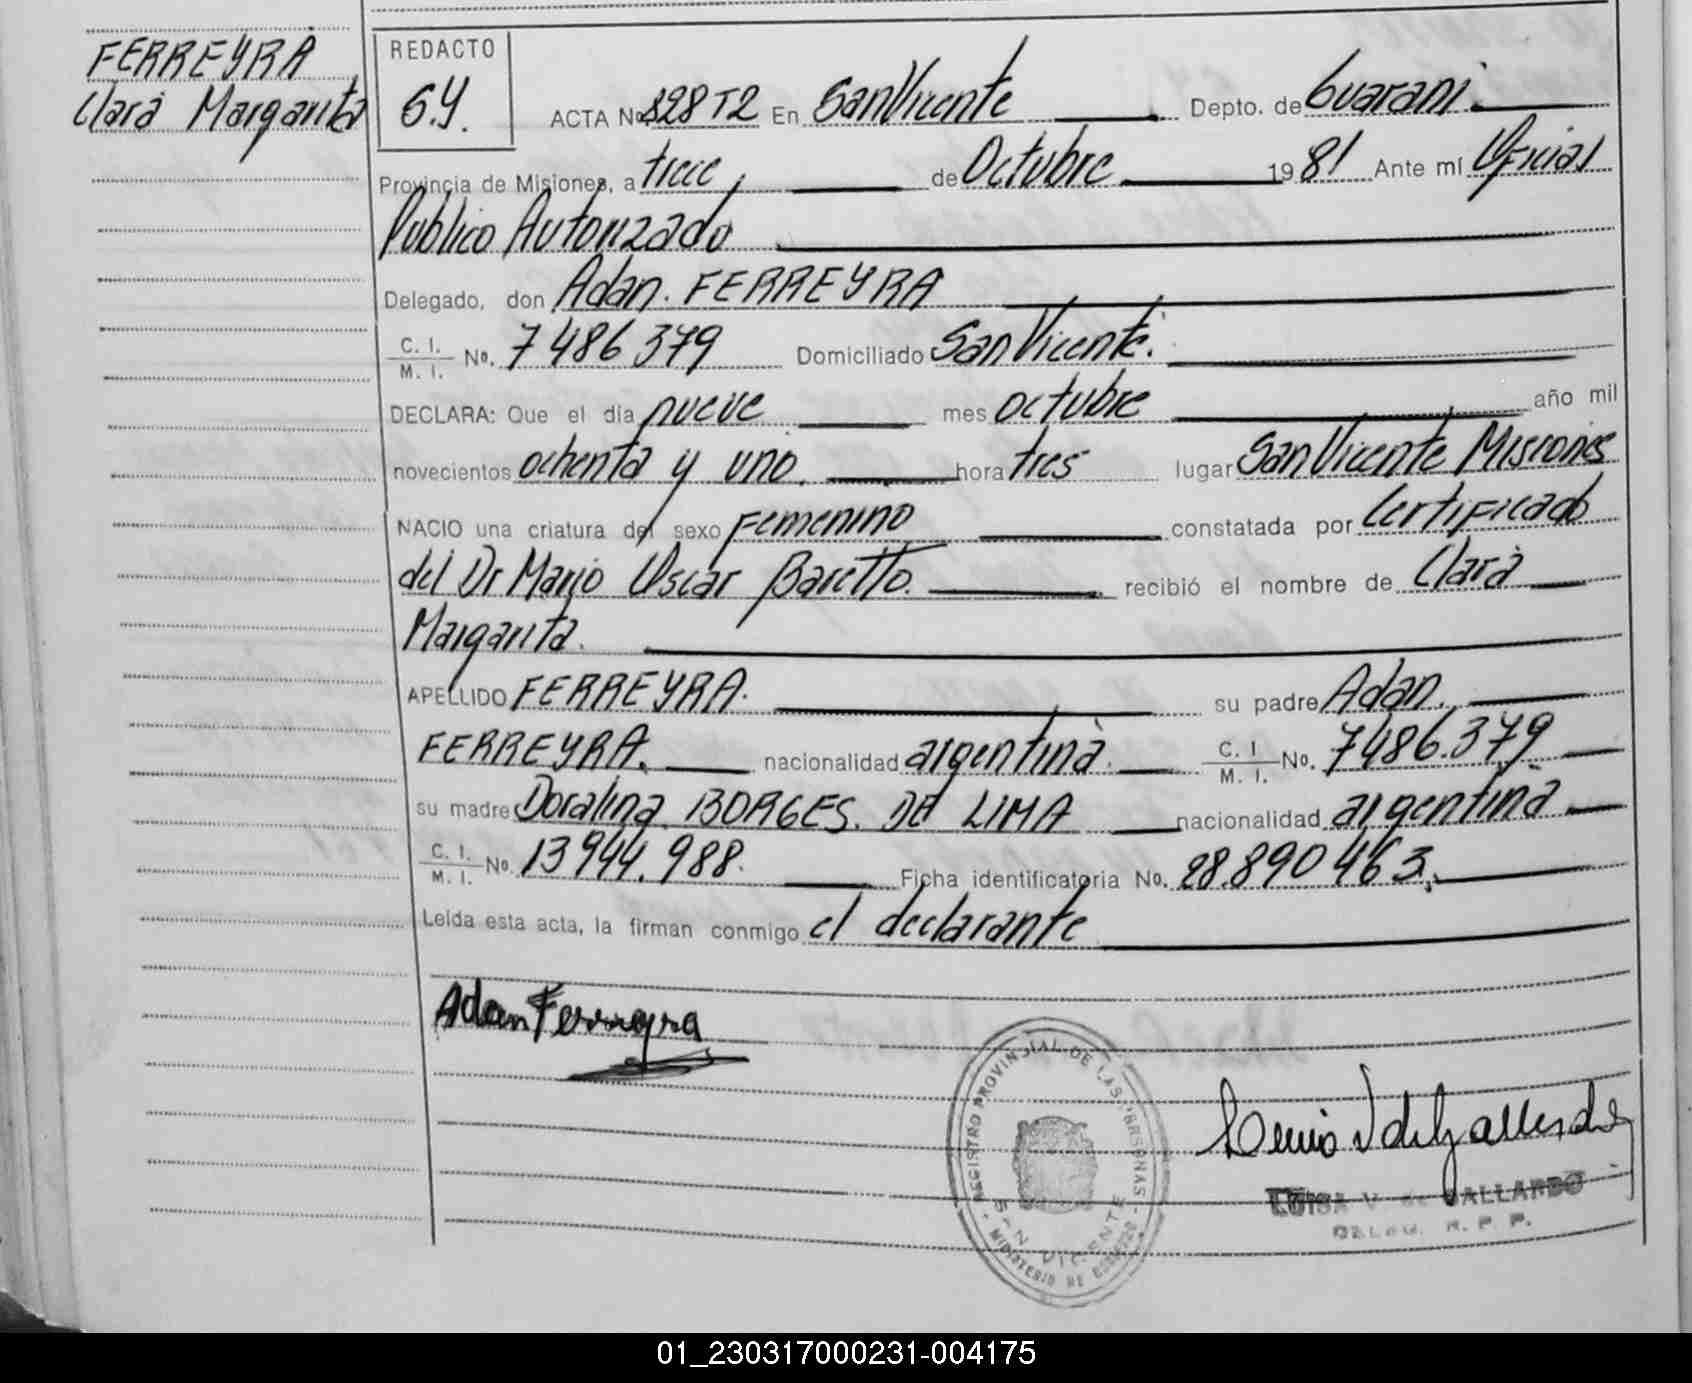 FERREYRA
Clara Margarita
REDACTO
G.Y.
ACTA No. 828 T2 En San Vicente Depto. de Guarani.
Provincia de Misiones, a trece, de Octubre 1981 Ante mí Oficial
Publico Autorizado
Delegado, don Adan. FERREYRA
C. I. M. I. No. 7486379 Domiciliado San Vicente.
DECLARA: Que el día nueve mes octubre año mil
novecientos ochenta y uno. hora tres lugar San Vicente Misiones
NACIO una criatura del sexo Femenino constatada por Certificado
del Dr Mario Oscar Baretto. recibió el nombre de Clara
Margarita.
APELLIDO FERREYRA. su padre Adan.
FERREYRA. nacionalidad argentina. C. I. M. I. No. 7486.379
su madre Doralina BORGES. DE LIMA nacionalidad argentina
C. I. M. I. No. 13944.988. Ficha identificatoria No. 28.890463.
Leída esta acta, la firman conmigo el declarante
Adan Ferreyra
REGISTRO PROVINCIAL DE LAS PERSONAS
SAN VICENTE
MINISTERIO DE GOBIERNO
LUISA V. de GALLARDO
DELEG. R. P. P.
01_230317000231-004175